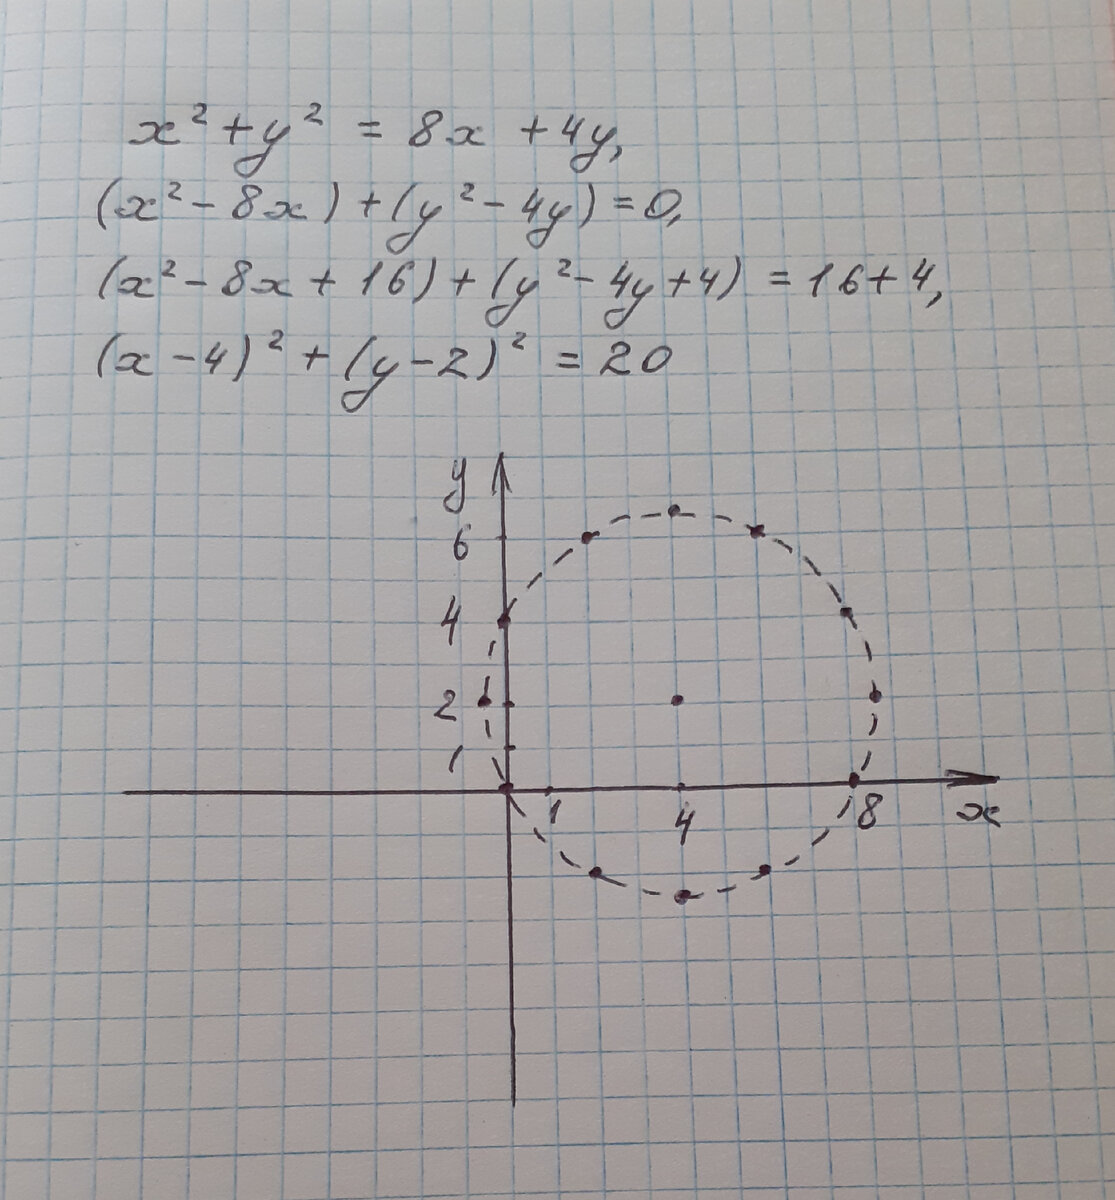 x² + y² = 8x + 4y,
(x² - 8x) + (y² - 4y) = 0,
(x² - 8x + 16) + (y² - 4y + 4) = 16 + 4,
(x - 4)² + (y - 2)² = 20
y
6
4
2
1
1 4 8 x